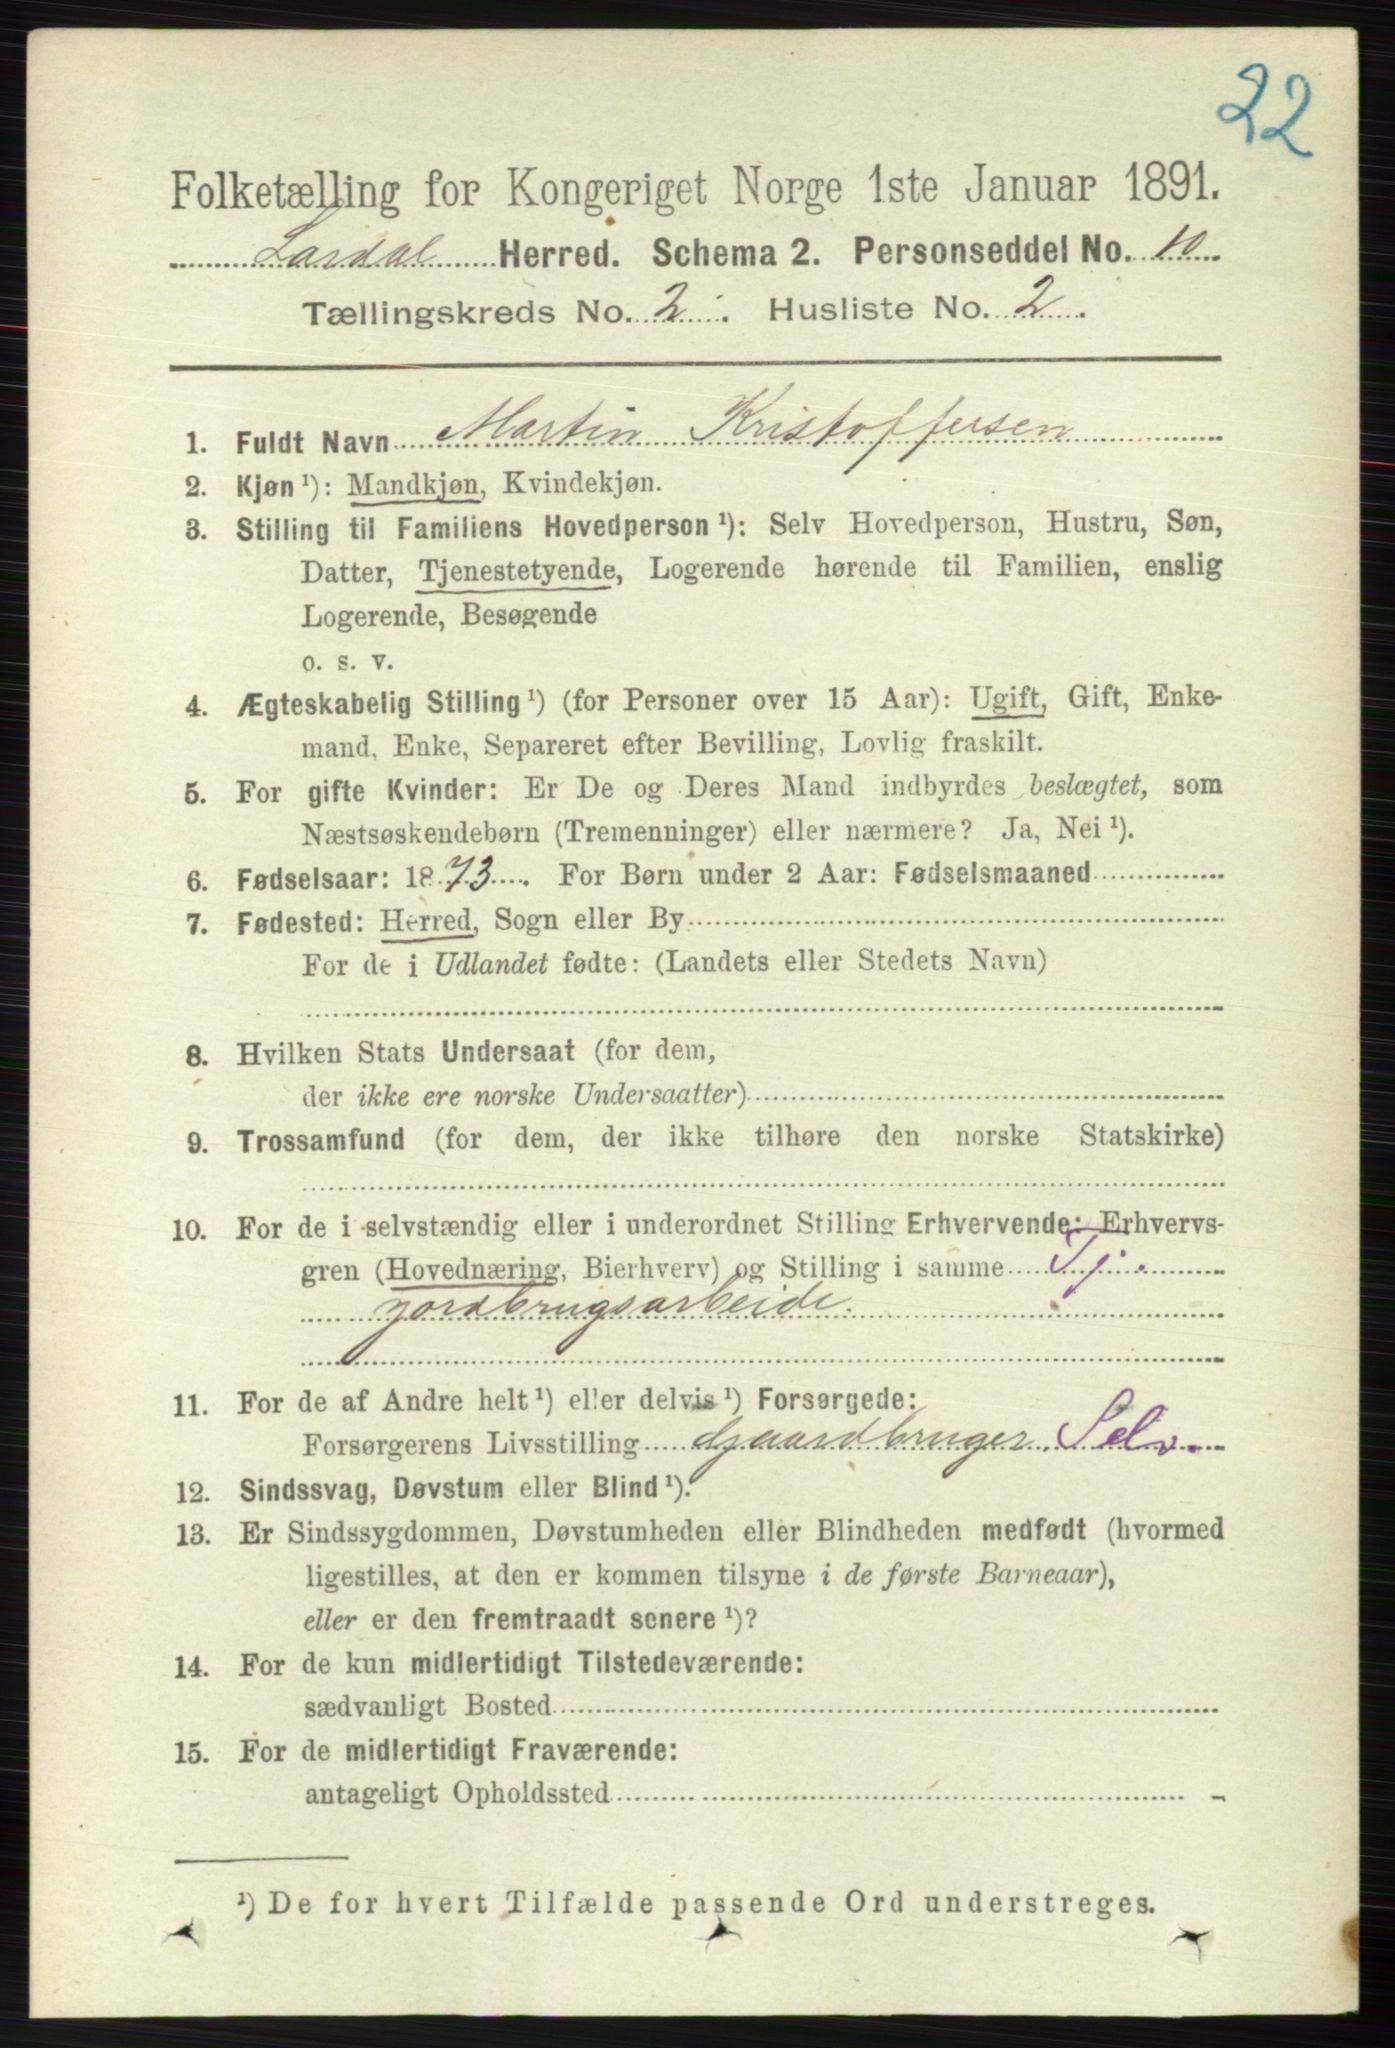 22
Folketælling for Kongeriget Norge 1ste Januar 1891.
Lardal Herred. Schema 2. Personseddel No. 10
Tællingskreds No. 2. Husliste No. 2.
1. Fuldt Navn Martin Kristoffersen
2. Kjøn ¹): Mandkjøn, Kvindekjøn.
3. Stilling til Familiens Hovedperson ¹): Selv Hovedperson, Hustru, Søn,
Datter, Tjenestetyende, Logerende hørende til Familien, enslig
Logerende, Besøgende
o. s. v.
4. Ægteskabelig Stilling ¹) (for Personer over 15 Aar): Ugift, Gift, Enke-
mand, Enke, Separeret efter Bevilling, Lovlig fraskilt.
5. For gifte Kvinder: Er De og Deres Mand indbyrdes beslægtet, som
Næstsøskendebørn (Tremenninger) eller nærmere? Ja, Nei ¹).
6. Fødselsaar: 1873. For Børn under 2 Aar: Fødselsmaaned
7. Fødested: Herred, Sogn eller By
For de i Udlandet fødte: (Landets eller Stedets Navn)
8. Hvilken Stats Undersaat (for dem,
der ikke ere norske Undersaatter)
9. Trossamfund (for dem, der ikke tilhøre den norske Statskirke)
10. For de i selvstændig eller i underordnet Stilling Erhvervende: Erhvervs-
gren (Hovednæring, Bierhverv) og Stilling i samme Tj.
jordbrugsarbeide.
11. For de af Andre helt ¹) eller delvis ¹) Forsørgede:
Forsørgerens Livsstilling Gaardbruger. Selv.
12. Sindssvag, Døvstum eller Blind ¹).
13. Er Sindssygdommen, Døvstumheden eller Blindheden medfødt (hvormed
ligestilles, at den er kommen tilsyne i de første Barneaar),
eller er den fremtraadt senere ¹)?
14. For de kun midlertidigt Tilstedeværende:
sædvanligt Bosted
15. For de midlertidigt Fraværende:
antageligt Opholdssted
¹) De for hvert Tilfælde passende Ord understreges.